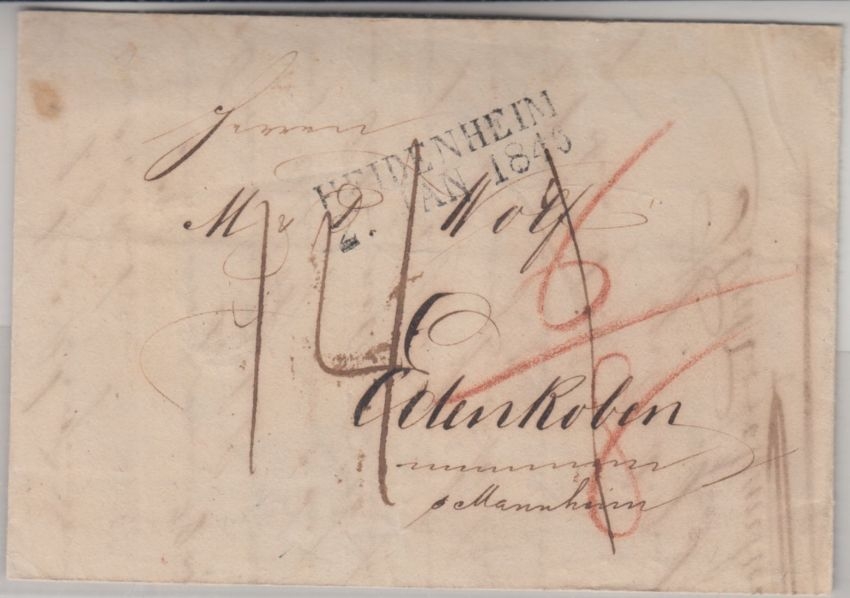 Herren
HEIDENHEIM
2. JAN 1846
M & D Wolf
14
6
8
Edenkoben
Mannheim